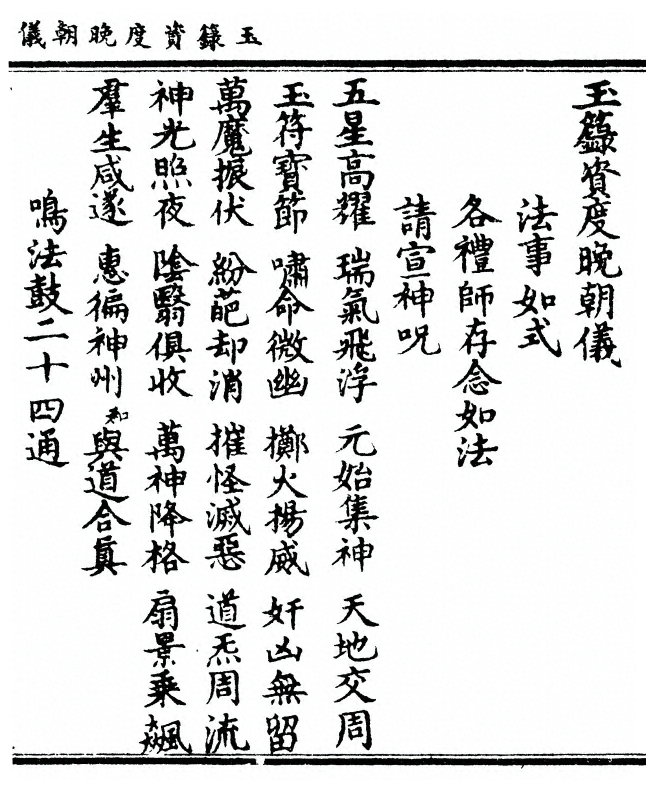 玉籙資度晚朝儀
玉籙資度晚朝儀
法事如式
各禮師存念如法
請宣神呪
五星高耀 瑞氣飛浮 元始集神 天地交周
玉符寶節 嘯命微幽 擲火揚威 奸凶無留
萬魔振伏 紛葩却消 摧怪滅惡 道炁周流
神光照夜 陰翳俱收 萬神降格 扇景乘飆
羣生咸遂 惠徧神州 和 與道合真
鳴法鼓二十四通